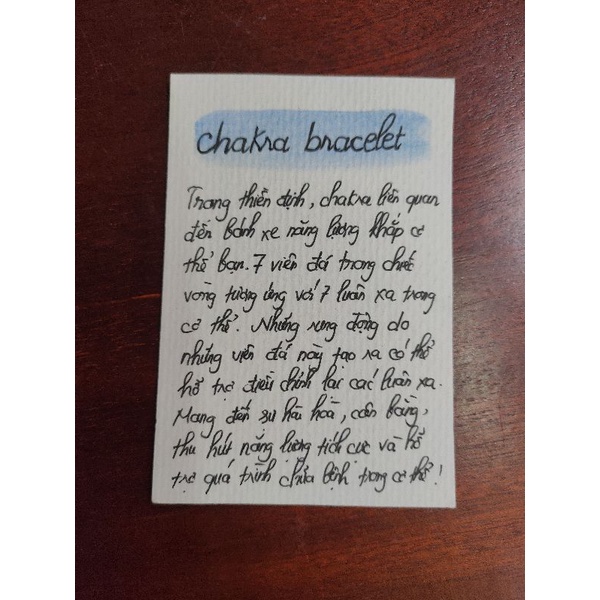 chakra bracelet
Trong thiền định, chakra liên quan
đến bánh xe năng lượng khắp cơ
thể bạn. 7 viên đá trong chiếc
vòng tương ứng với 7 luân xa trong
cơ thể. Những rung động do
những viên đá này tạo ra có thể
hỗ trợ điều chỉnh lại các luân xa.
Mang đến sự hài hoà, cân bằng,
thu hút năng lượng tích cực và hỗ
trợ quá trình chữa bệnh trong cơ thể!